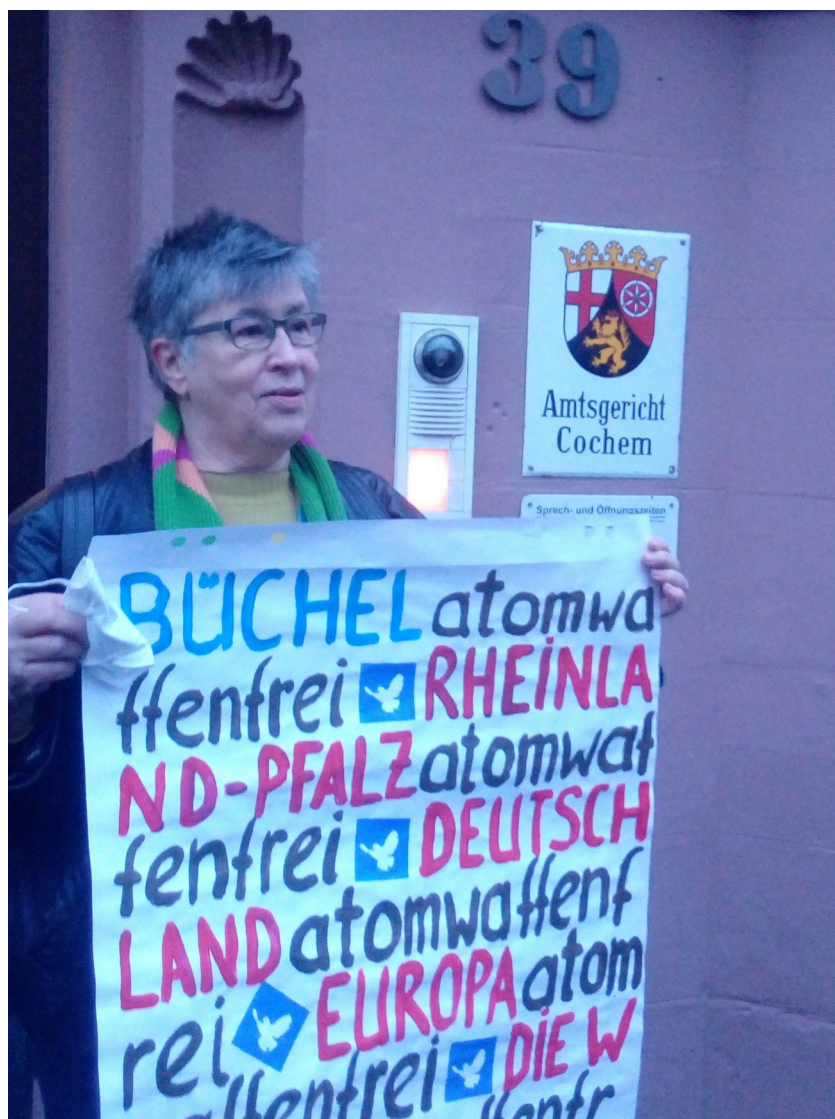 39
Amtsgericht
Cochem
Sprech- und Öffnungszeiten
BÜCHEL atomwa
ffenfrei RHEINLA
ND-PFALZ atomwaf
fenfrei DEUTSCH
LAND atomwaffenf
rei EUROPA atom
waffenfrei DIE W